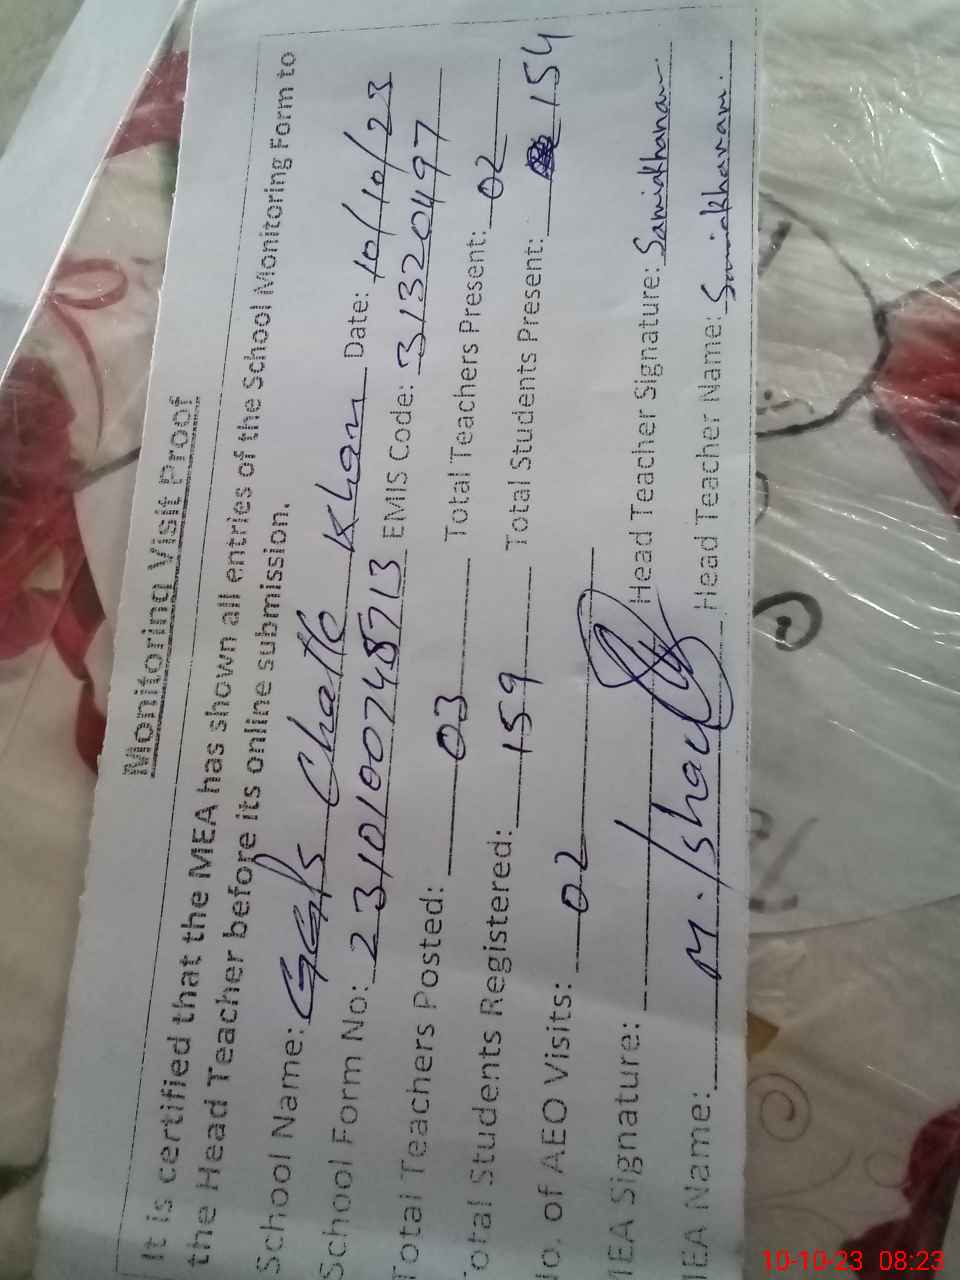 Monitoring Visit Proof
It is certified that the MEA has shown all entries of the School Monitoring Form to
the Head Teacher before its online submission.
School Name: GGPS Chatto Khan Date: 10/10/23
School Form No: 2310100748713 EMIS Code: 31320497
Total Teachers Posted: 03 Total Teachers Present: 02
Total Students Registered: 159 Total Students Present: 154
No. of AEO Visits: 02
MEA Signature: Head Teacher Signature: Samiakhanam
MEA Name: M. Ishaq Head Teacher Name: Samiakhanam
10-10-23 08:23